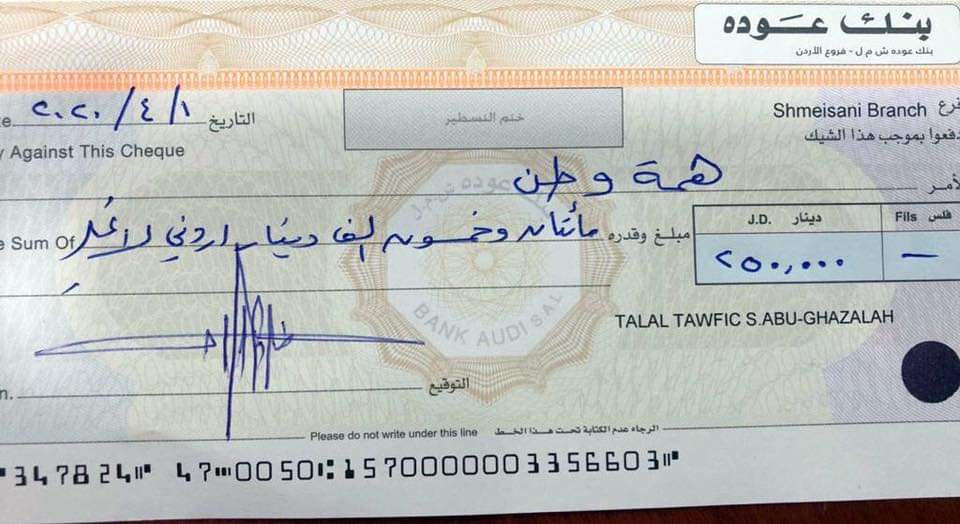 بنك عوده
بنك عوده ش م ل - فروع الأردن
٢٠٢٠/٤/١ التاريخ
ختم التسطير
Shmeisani Branch فرع
Against This Cheque
دفعوا بموجب هذا الشيك
همة وطن
Sum Of مبلغ وقدره مائتان وخمسون الف دينار اردني لا غير
J.D. دينار Fils فلس
٢٥٠,٠٠٠ —
BANK AUDI S.A.L
TALAL TAWFIC S.ABU-GHAZALAH
التوقيع
Please do not write under this line الرجاء عدم الكتابة تحت هذا الخط
⑈347824⑈ 47⑉0050⑆1570000003356603⑈